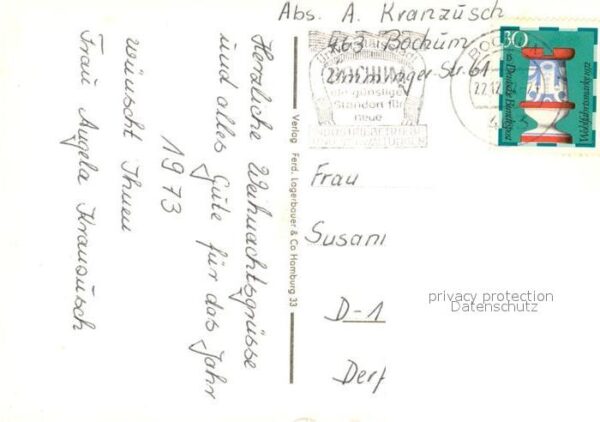 Abs. A. Kranzusch
463 Bochum
Str. 61
30
10 Deutsche Bundespost
Wohlfahrtsmarke 1972
günstige
Standort für
neue
Herzliche Weihnachtsgrüsse
und alles Gute für das Jahr
1973
wünscht Ihnen
Frau Angela Kranzusch
Verlag Ferd. Lagerbauer & Co Hamburg 33
Frau
Susani
D-1
Derf
privacy protection
Datenschutz